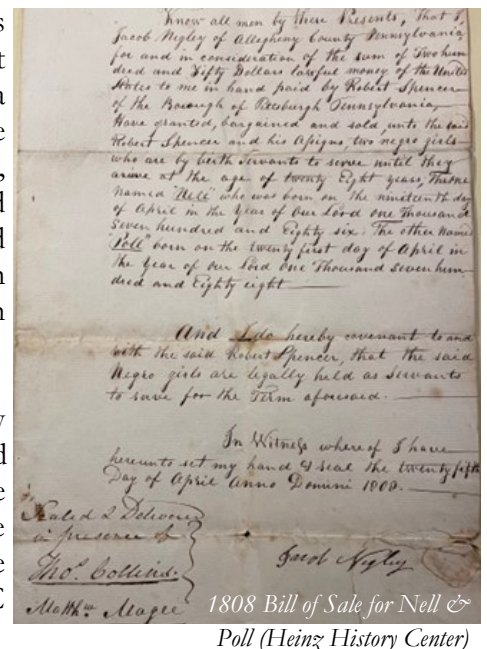 Know all men by these Presents, that I,
Jacob Nigley of Allegheny County Pennsylvania
for and in consideration of the sum of Two hun
dred and Fifty Dollars lawful money of the United
States to me in hand paid by Robert Spencer
of the Borough of Pittsburgh Pennsylvania,
Have granted, bargained and sold, unto the said
Robert Spencer and his Assigns, two negro girls
who are by birth Servants to serve until they
arrive at the age of twenty Eight years, The one
named "Nell" who was born on the nineteenth day
of April in the Year of Our Lord one thousand
Seven hundred and Eighty six. The other named
"Poll" born on the twenty first day of April in
the Year of our Lord One Thousand Seven hun
dred and Eighty eight
And I do hereby covenant to and
with the said Robert Spencer, that the said
Negro girls are legally held as Servants
to serve for the Term aforesaid.
In Witness whereof I have
hereunto set my hand & seal the twenty fifth
Day of April Anno Domini 1808.
Sealed & Delivered
in presence of
Thos. Collins.
Matthw. Magee
Jacob Nigley
1808 Bill of Sale for Nell &
Poll (Heinz History Center)